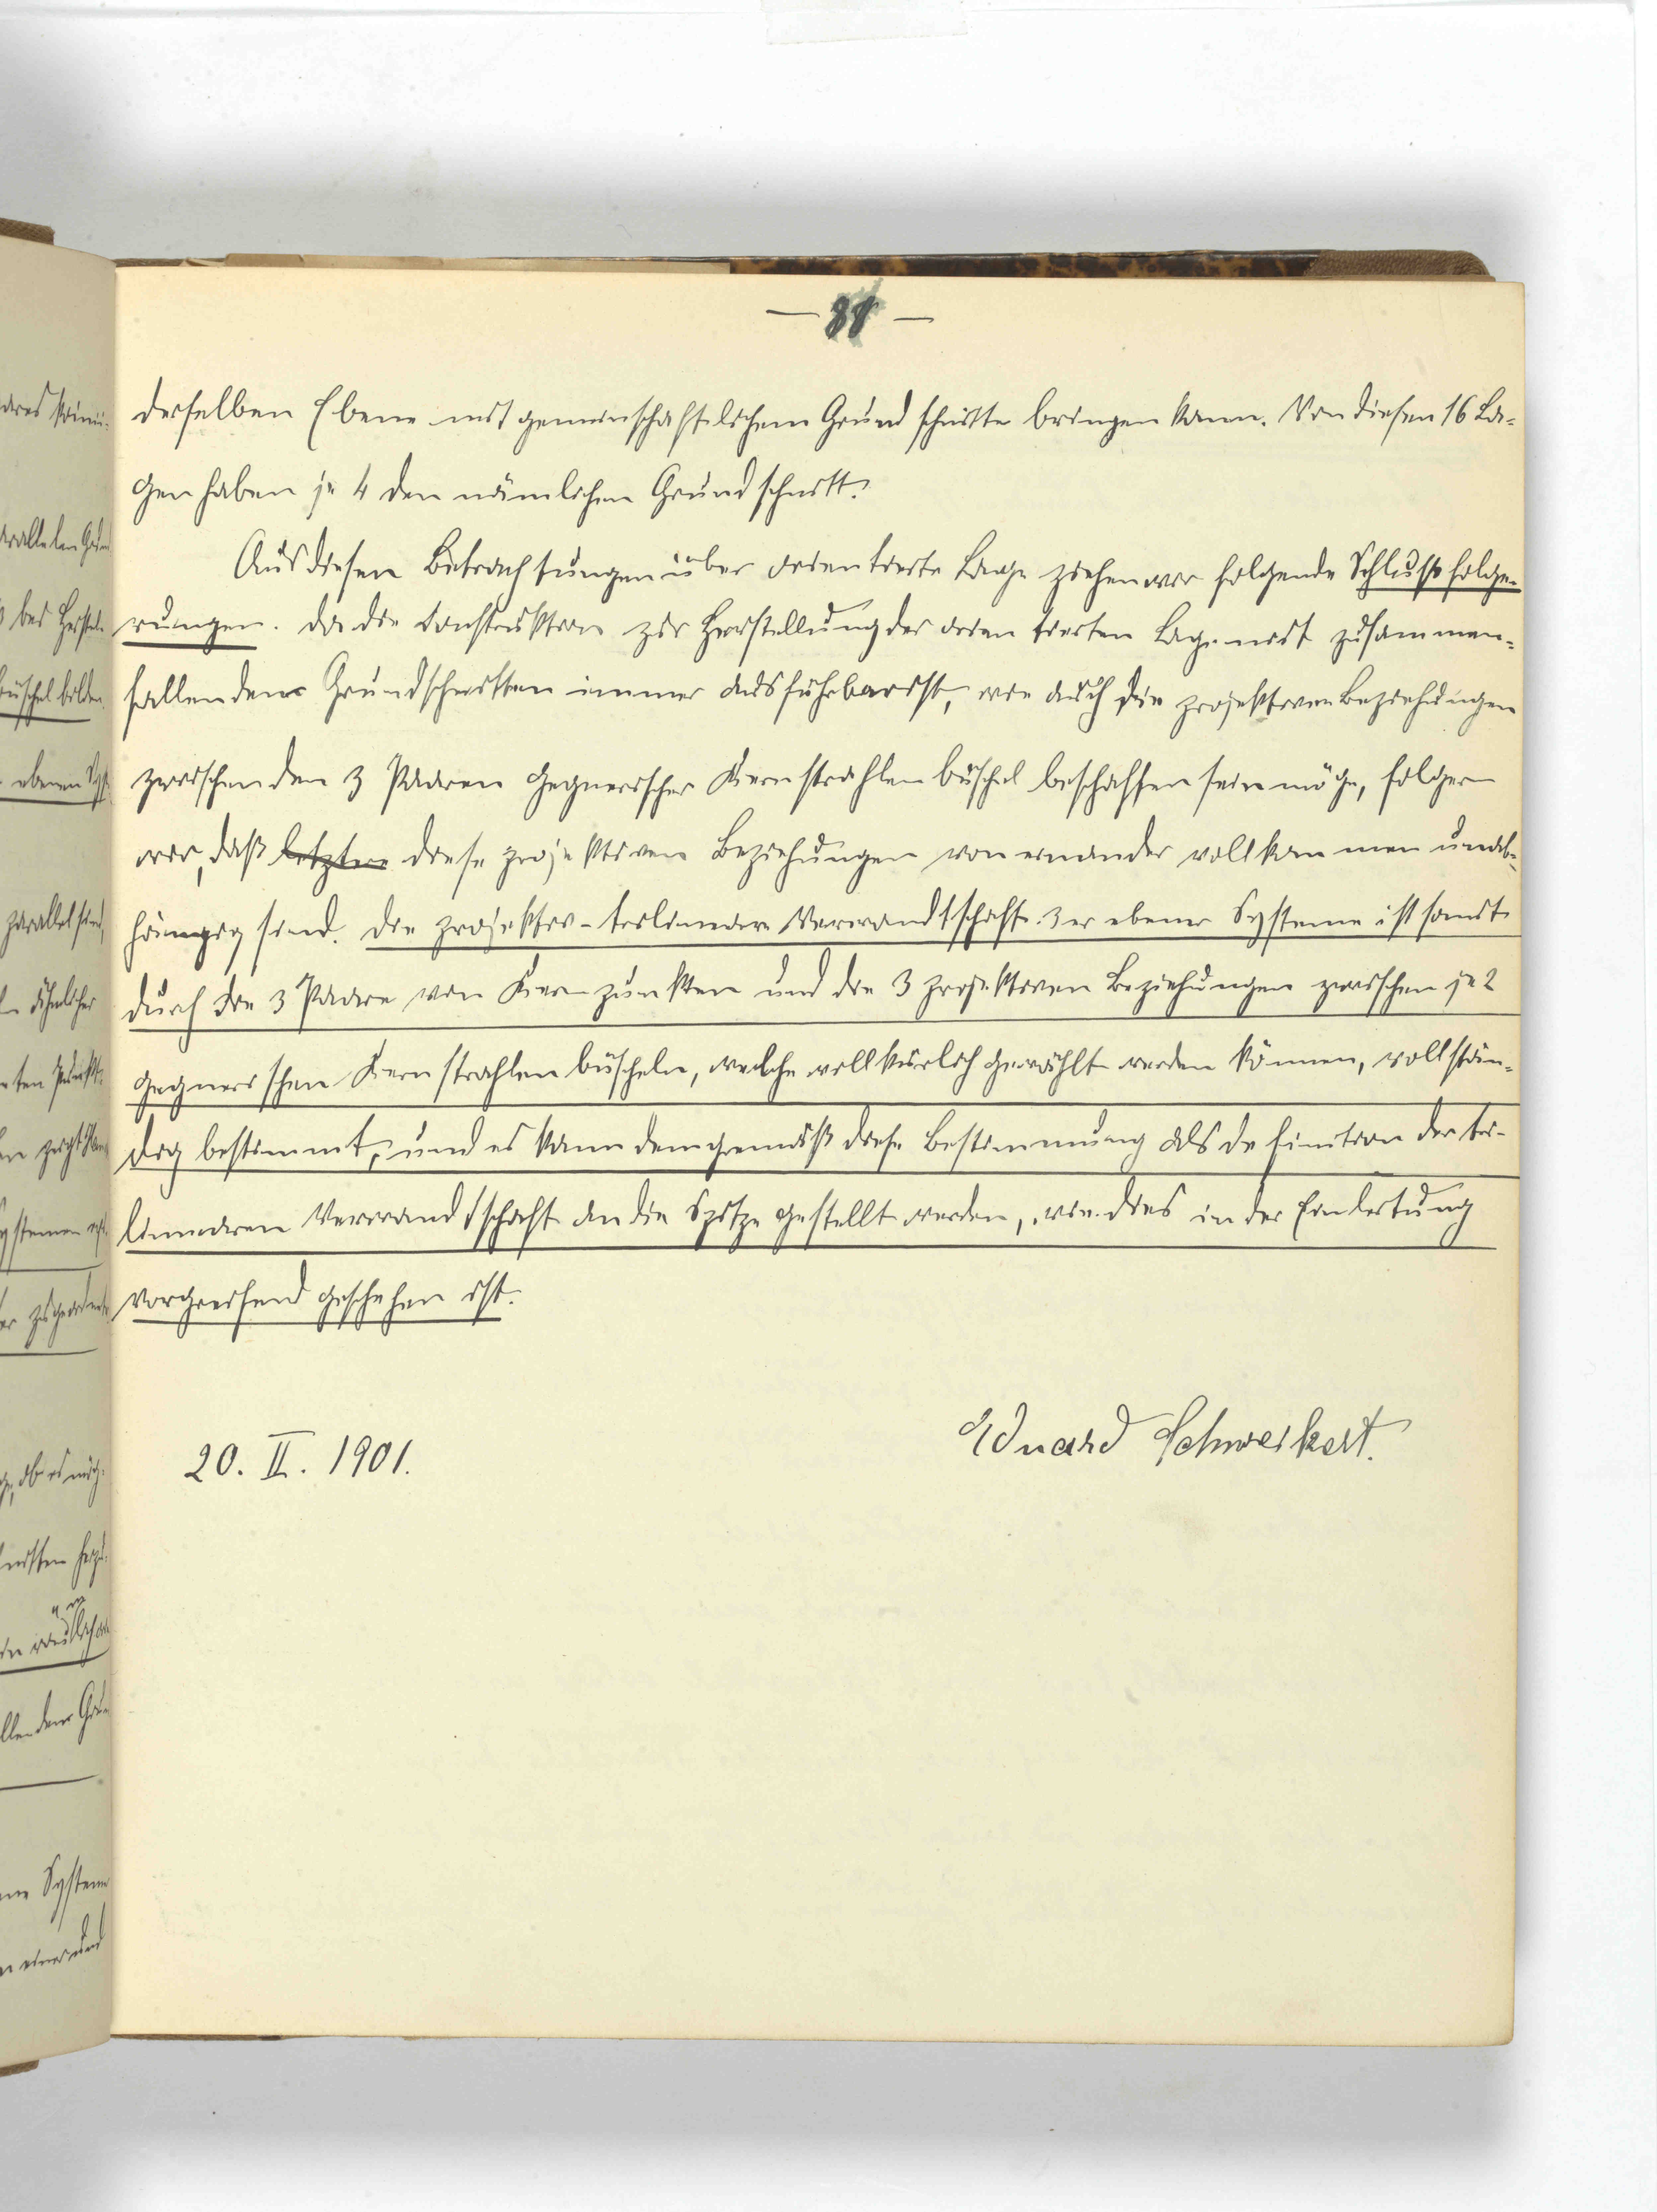 — 88 —
derselben Ebene mit gemeinschaftlichem Grundschnitte bringen kann. Von diesen 16 La-
gen haben je 4 den nämlichen Grundschnitt.
Aus diesen Betrachtungen über orientierte Lage ziehen wir folgende Schlussfolge-
rungen. Da die Construktion zur Herstellung der orientierten Lage mit zusammen-
fallenden Grundschnitten immer ausführbar ist, wie auch die projektiven Beziehungen
zwischen den 3 Paaren gegnerischer Kernstrahlenbüschel beschaffen sein möge, folgern
wir, daß letztere diese projektiven Beziehungen von einander vollkommen unab-
hängig sind. Die projektiv-trilineare Verwandtschaft 3er ebener Systeme ist somit
durch die 3 Paare von Kernpunkten und die 3 projektiven Beziehungen zwischen je 2
gegnerischen Kernstrahlenbüscheln, welche willkürlich gewählt werden können, vollstän-
dig bestimmt, und es kann demgemäß diese Bestimmung als Definition der tri-
linearen Verwandtschaft an die Spitze gestellt werden, wie dies in der Einleitung
vorgreifend geschehen ist.
20. II. 1901.
Eduard Schweikert.